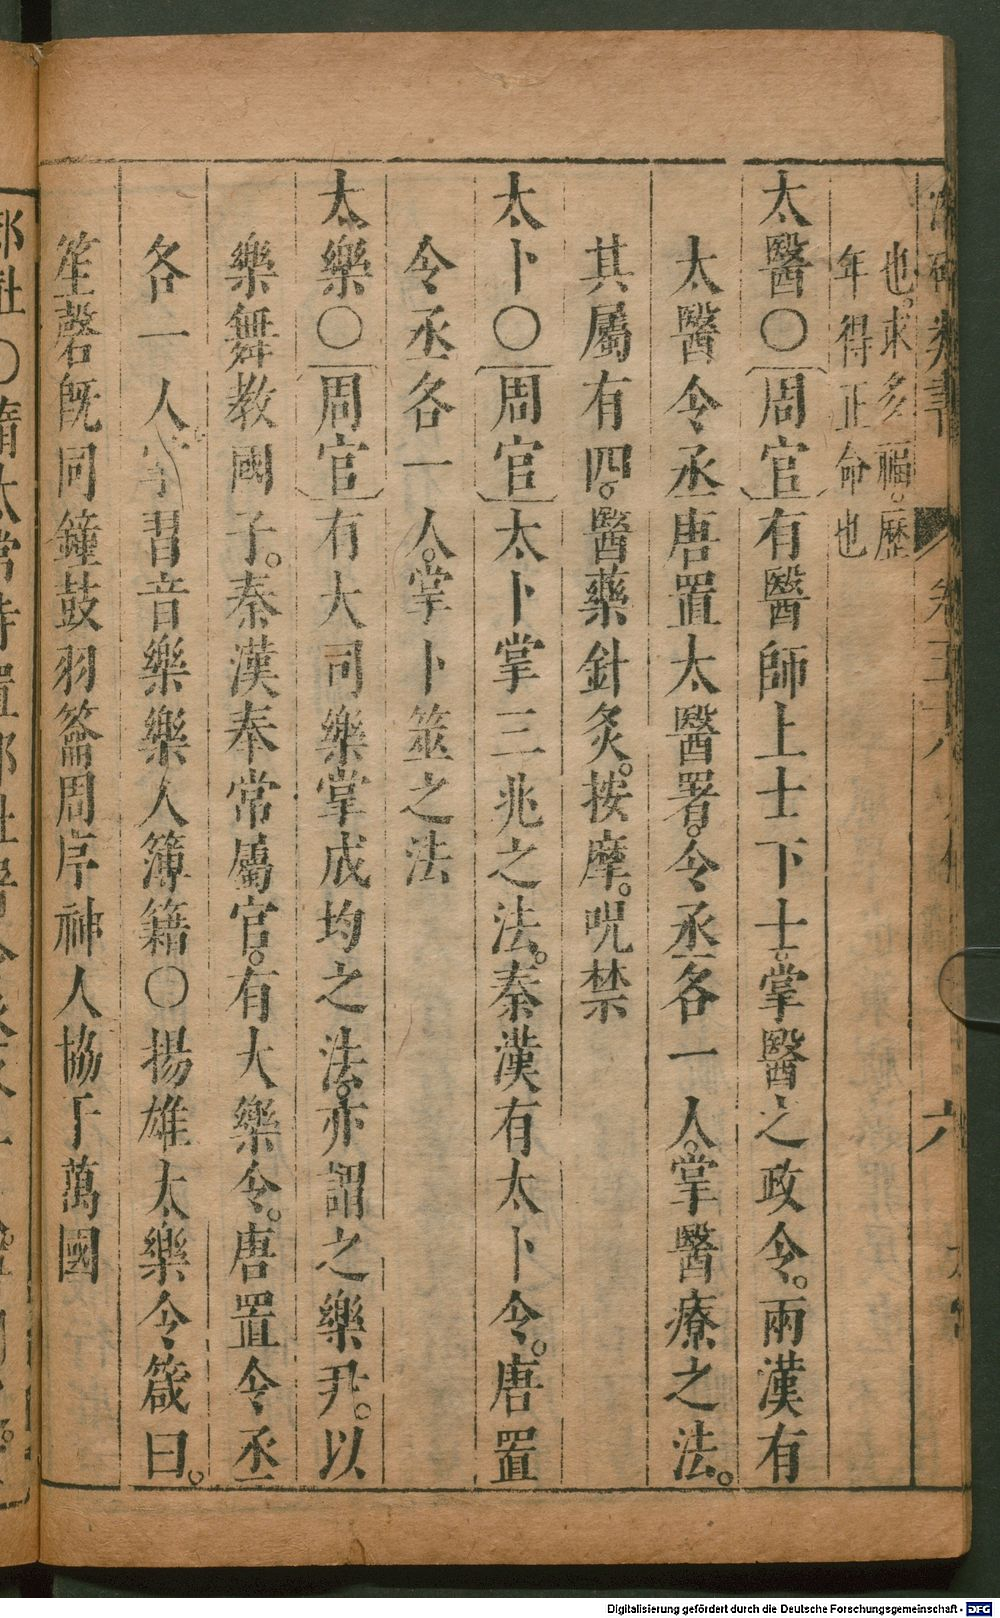 也。求多福。歷
年得正命也
太醫〇周官有醫師上士下士。掌醫之政令。兩漢有
太醫令丞唐置太醫署。令丞各一人。掌醫療之法。
其屬有四。醫藥針灸。按摩。呪禁
太卜〇周官太卜掌三兆之法。秦漢有太卜令。唐置
令丞各一人。掌卜筮之法
太樂〇周官有大司樂掌成均之法。亦謂之樂尹。以
樂舞教國子。秦漢奉常屬官。有大樂令。唐置令丞
各一人掌習音樂樂人簿籍〇揚雄太樂令箴曰。
笙磬既同鐘鼓羽籥周序神人協于萬國
Digitalisierung gefördert durch die Deutsche Forschungsgemeinschaft - DFG